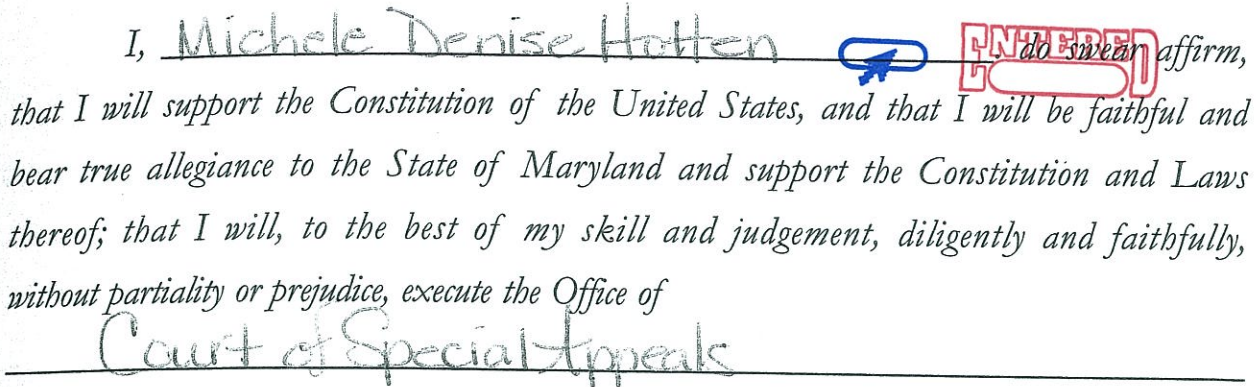 I, Michele Denise Hotten ENTERED, do swear affirm,
that I will support the Constitution of the United States, and that I will be faithful and
bear true allegiance to the State of Maryland and support the Constitution and Laws
thereof; that I will, to the best of my skill and judgement, diligently and faithfully,
without partiality or prejudice, execute the Office of
Court of Special Appeals